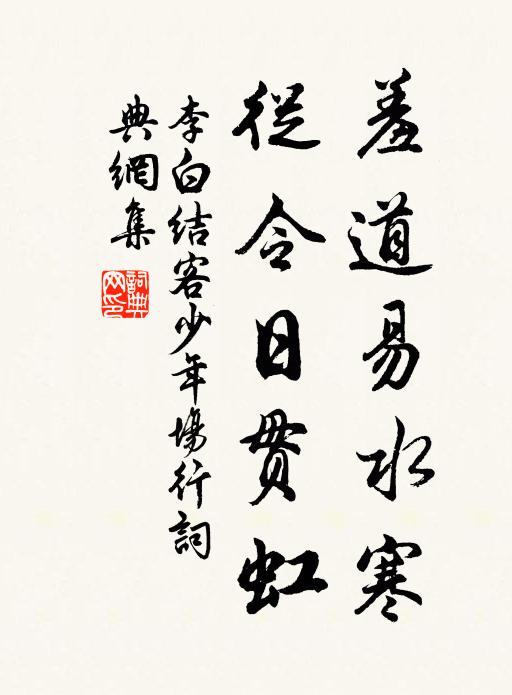 羞道易水寒
從令日貫虹
李白結客少年場行詞
典網集
詞典
网印